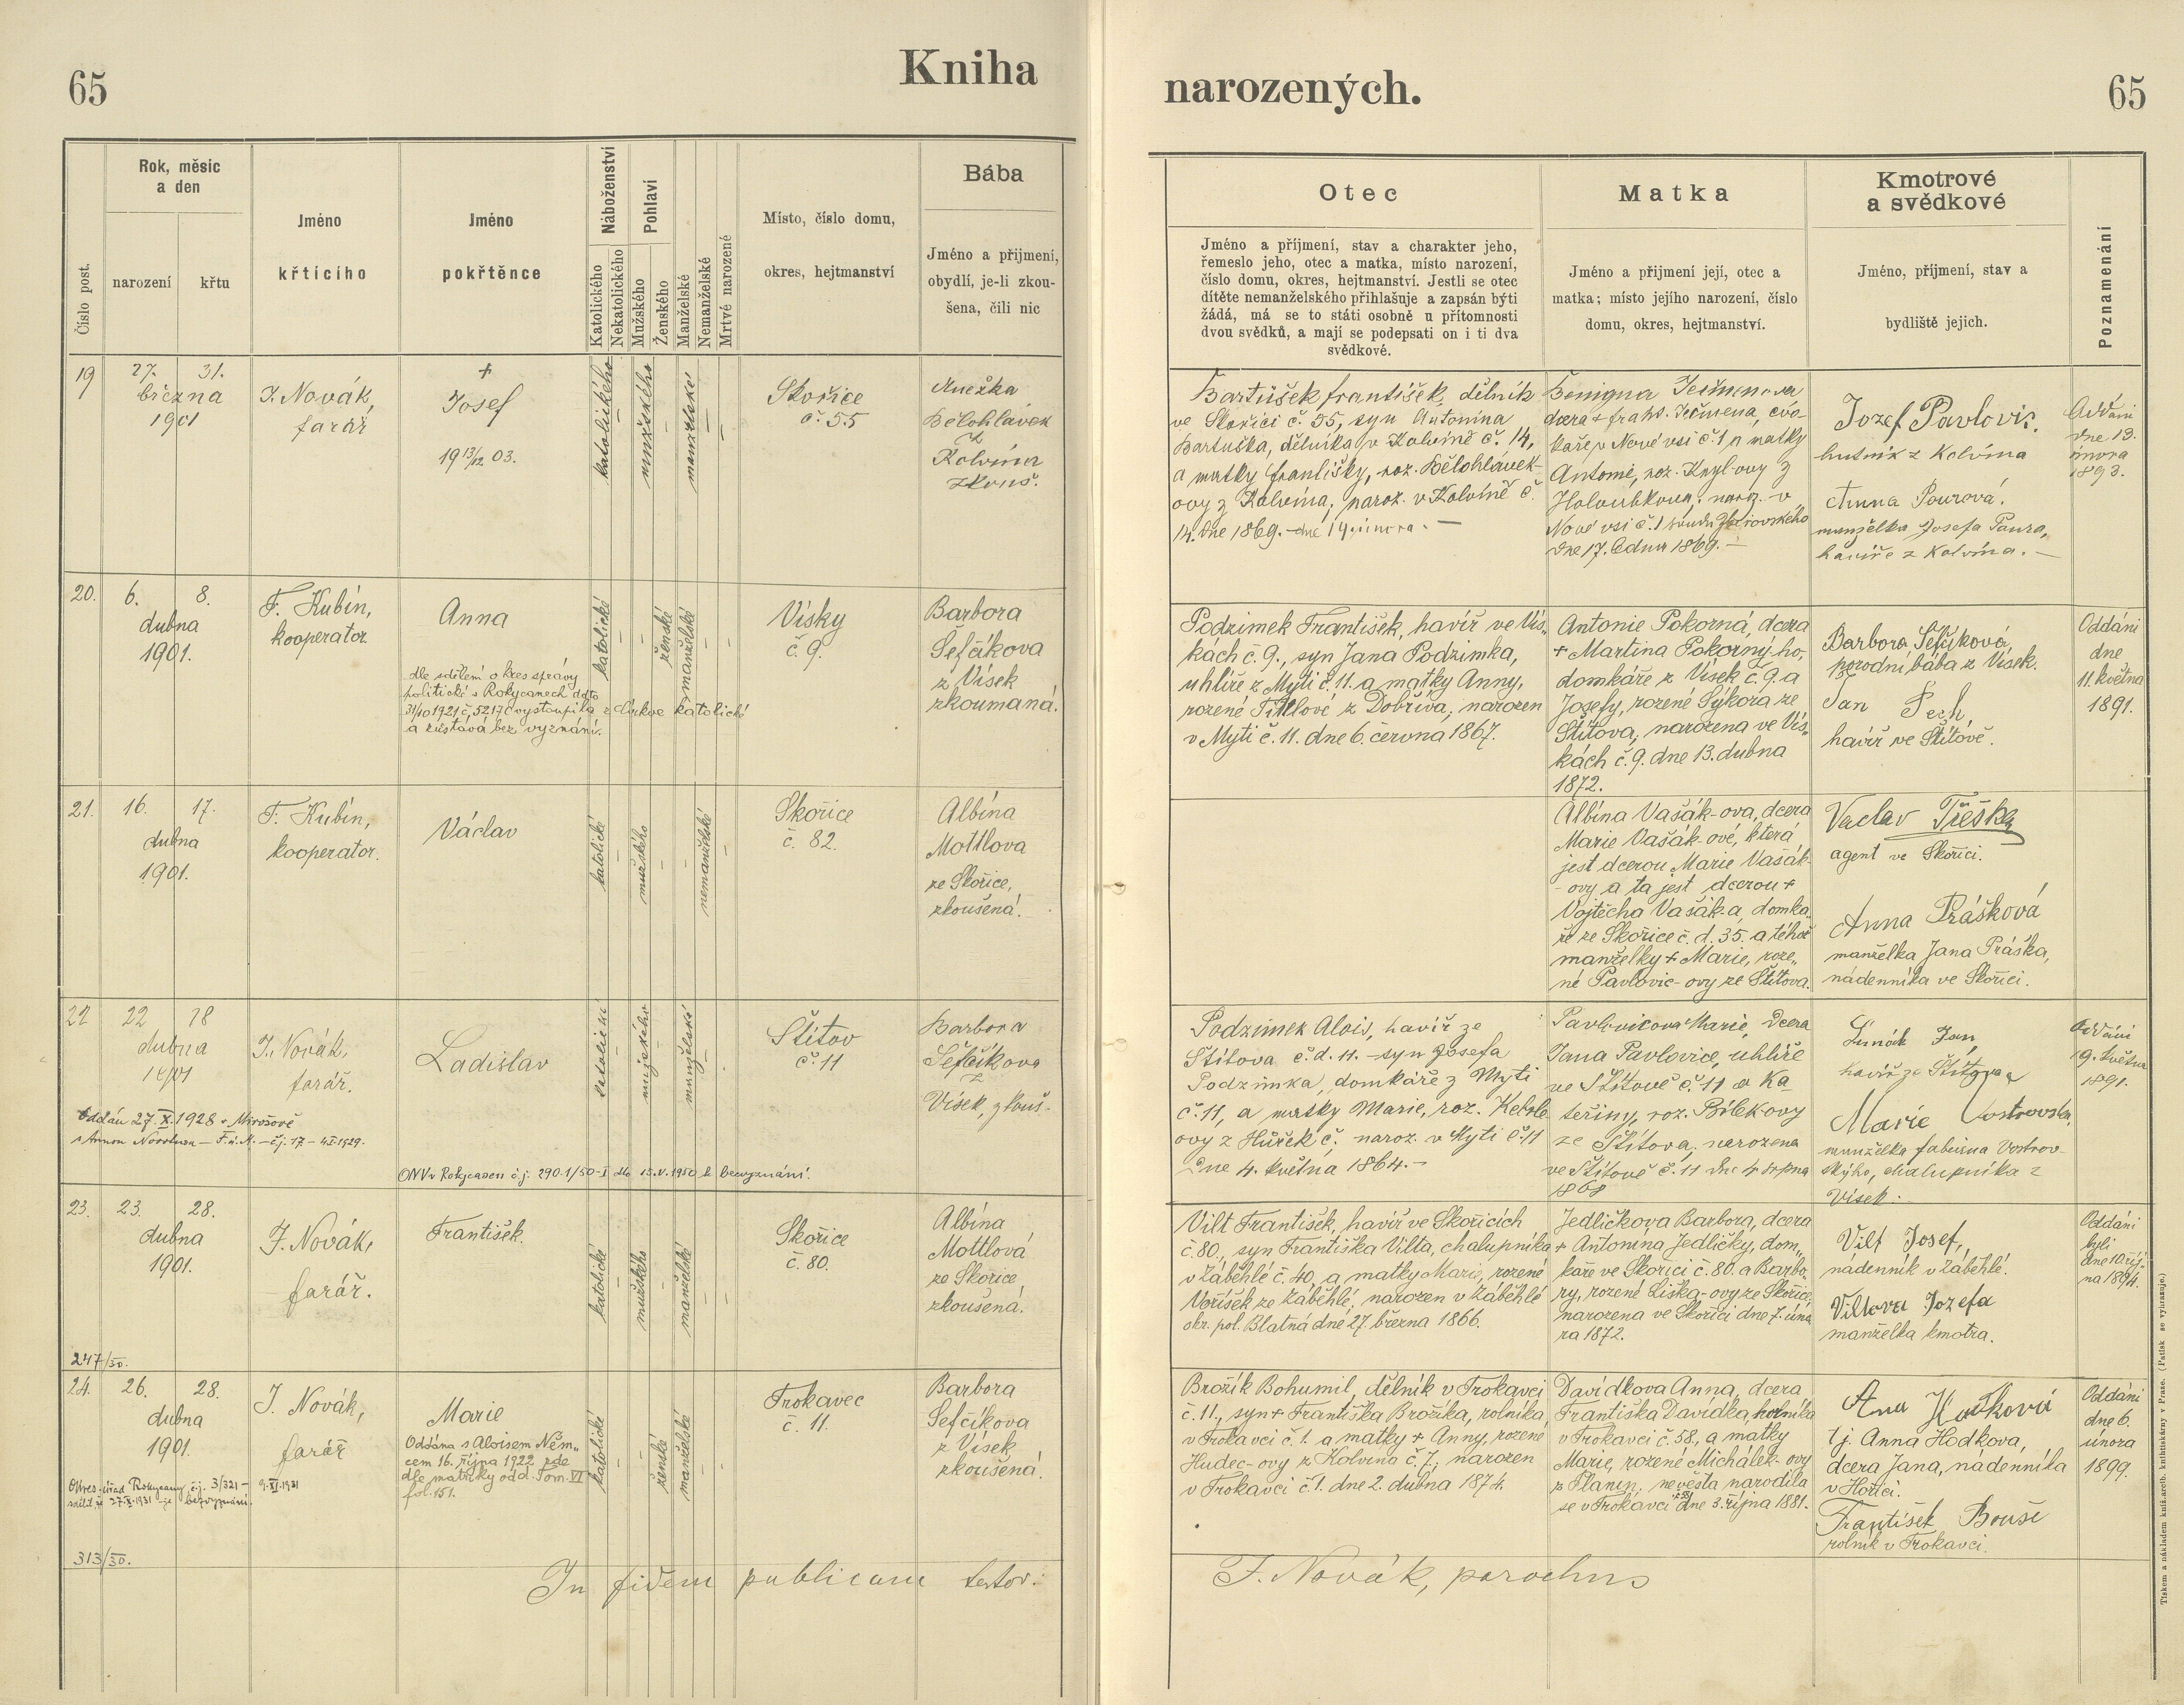 65
Kniha
narozených.
65
Číslo post.
Rok, měsíc
a den
narození
křtu
Jméno
křtícího
Jméno
pokřtěnce
Náboženství
Katolického
Nekatolického
Pohlaví
Mužského
Ženského
Manželské
Nemanželské
Mrtvě narozené
Místo, číslo domu,
okres, hejtmanství
Bába
Jméno a přijmení,
obydlí, je-li zkou-
šena, čili nic
Otec
Jméno a příjmení, stav a charakter jeho,
řemeslo jeho, otec a matka, místo narození,
číslo domu, okres, hejtmanství. Jestli se otec
dítěte nemanželského přihlašuje a zapsán býti
žádá, má se to státi osobně u přítomnosti
dvou svědků, a mají se podepsati on i ti dva
svědkové.
Matka
Jméno a přijmení její, otec a
matka; místo jejího narození, číslo
domu, okres, hejtmanství.
Kmotrové
a svědkové
Jméno, příjmení, stav a
bydliště jejich.
Poznamenání
19
27. 31.
března
1901
J. Novák,
farář
+
Josef
19 13/12 03.
katolického
mužského
manželské
Skořice
č. 55
Anežka
Bělohlávek
z
Kolvína
zkouš.
Bartůšek František, dělník
ve Skořici č. 55, syn Antonína
Bartuška, dělníka v Kolvíně č. 14,
a matky Františky, roz. Bělohlávek-
ovy z Kolvína, naroz. v Kolvíně č.
14. dne 1869. dne 14. února. —
Benigna Ječmenova
dcera + Frant. Ječmena,
v Nové vsi č. 1 a matky
Antonie, roz.
Holoubkova, naroz. v
Nové vsi č. 1 soudu Zbirovského
dne 17. ledna 1869. —
Jozef Pavlovic.
hutník z Kolvína
Anna Pourová.
manželka Josefa Poura,
havíře z Kolvína. —
Oddáni
dne 13.
února
1893.
20.
6. 8.
dubna
1901.
F. Kubín,
kooperator.
Anna
dle sdělení okres správy
politické v Rokycanech ddto
31/10 1921 č. 52176 vystoupila z církve katolické
a zůstává bez vyznání.
katolické
ženské
manželské
Vísky
č. 9.
Barbora
Šefčíkova
z Vísek
zkoumaná.
Podzimek František, havíř ve Vís„
kách č. 9., syn Jana Podzimka,
uhlíře z Mytí č. 11. a matky Anny,
rozené Tittlové z Dobříva, narozen
v Mytí č. 11. dne 6. června 1867.
Antonie Pokorná, dcera
+ Martina Pokorný-ho,
domkáře z Vísek č. 9. a
Josefy, rozené Sýkora ze
Štítova, narozena ve Vís„
kách č. 9. dne 13. dubna
1872.
Barbora Šefčíková,
porodní bába z Vísek.
Jan Pech,
havíř ve Štítově.
Oddáni
dne
11. května
1891.
21.
16. 17.
dubna
1901.
F. Kubín,
kooperator.
Václav
katolické
mužského
nemanželské
Skořice
č. 82.
Albína
Mottlova
ze Skořice,
zkoušená.
Albína Vašák-ova, dcera
Marie Vašák-ové, která
jest dcerou Marie Vašák-
ovy a ta jest dcerou +
Vojtěcha Vašáka, domka„
ře ze Skořice č. d. 35. a téhož
manželky + Marie, roze„
né Pavlovic-ovy ze Štítova.
Vaclav Třeška
agent ve Skořici.
Anna Prášková
manželka Jana Práška,
nádenníka ve Skořici.
22
22 28
dubna
1901
J. Novák,
farář.
Ladislav
Oddán 27. X. 1928 v Mirošově
ONV v Rokycanech č.j. 290.1/50-I dle 15.V.1950 k bezvyznání.
katolické
mužského
manželské
Štítov
č. 11
Barbora
Šefčíkova
z
Vísek, zkouš.
Podzimek Alois, havíř ze
Štítova č. d. 11. – syn Josefa
Podzimka, domkáře z Mytí
č. 11, a matky Marie, roz.
ovy z Hůrek č. naroz. v Mytí č. 11
dne 4. května 1864. –
Pavlovicova Marie, dcera
Jana Pavlovice, uhlíře
ve Štítově č. 11 a Ka
teřiny, roz. Bílek-ovy
ze Štítova, narozena
ve Štítově č. 11 dne 4 srpna
1868
Jan,
havíř ze Štítova
Marie Vostrovska,
manželka Fabiána Vostrov-
ského, chalupníka z
Vísek.
Oddáni
19. května
1891.
23.
23. 28.
dubna
1901.
J. Novák,
farář.
František.
katolické
mužského
manželské
Skořice
č. 80.
Albína
Mottlová
ze Skořice,
zkoušená.
Vilt František, havíř ve Skořicích
č. 80., syn Františka Vilta, chalupníka
v Záběhlé č. 40, a matky Marie, rozené
Voříšek ze Záběhlé, narozen v Záběhlé
okr. pol. Blatná dne 27. března 1866.
Jedličkova Barbora, dcera
+ Antonína Jedličky, dom„
káře ve Skořici č. 80. a Barbo„
ry, rozené Liška-ovy ze Skořice,
narozena ve Skořici dne 7. úno
ra 1872.
Vilt Josef,
nádenník v Záběhlé.
Viltova Jozefa
manželka kmotra.
Oddáni
byli
dne 10. říj-
na 1894.
247/30.
24.
26. 28.
dubna
1901.
J. Novák,
farář
Marie
Oddána s Aloisem Něm„
cem 16. října 1922 zde
dle matriky odd. Tom. VI
fol. 151.
Okres. úřad Rokycany č.j. 3/321 – 9.XI.1931
sdělil, že 27.X.1931 – je bezvyznání.
katolické
ženské
manželské
Trokavec
č. 11.
Barbora
Šefčíkova
z Vísek
zkoušená.
Brožík Bohumil, dělník v Trokavci
č. 11., syn + Františka Brožíka, rolníka,
v Trokavci č. 1. a matky + Anny, rozené
Hudec-ovy z Kolvína č. 7., narozen
v Trokavci č. 1. dne 2. dubna 1874.
Davídkova Anna, dcera
Františka Davídka, rolníka
v Trokavci č. 58, a matky
Marie, rozené Michálek-ovy
z Planin, nevěsta narodila
se v Trokavci dne 3. října 1881.
Ana Hodková
tj. Anna Hodkova,
dcera Jana, nádenníka
v Hořici.
František Bouše
rolník v Trokavci.
Oddáni
dne 6.
února
1899.
313/30.
In fidem publicam testor:
J. Novák, parochus
Tiskem a nákladem kníž. arcib. knihtiskárny v Praze. (Patisk se vyhrazuje.)